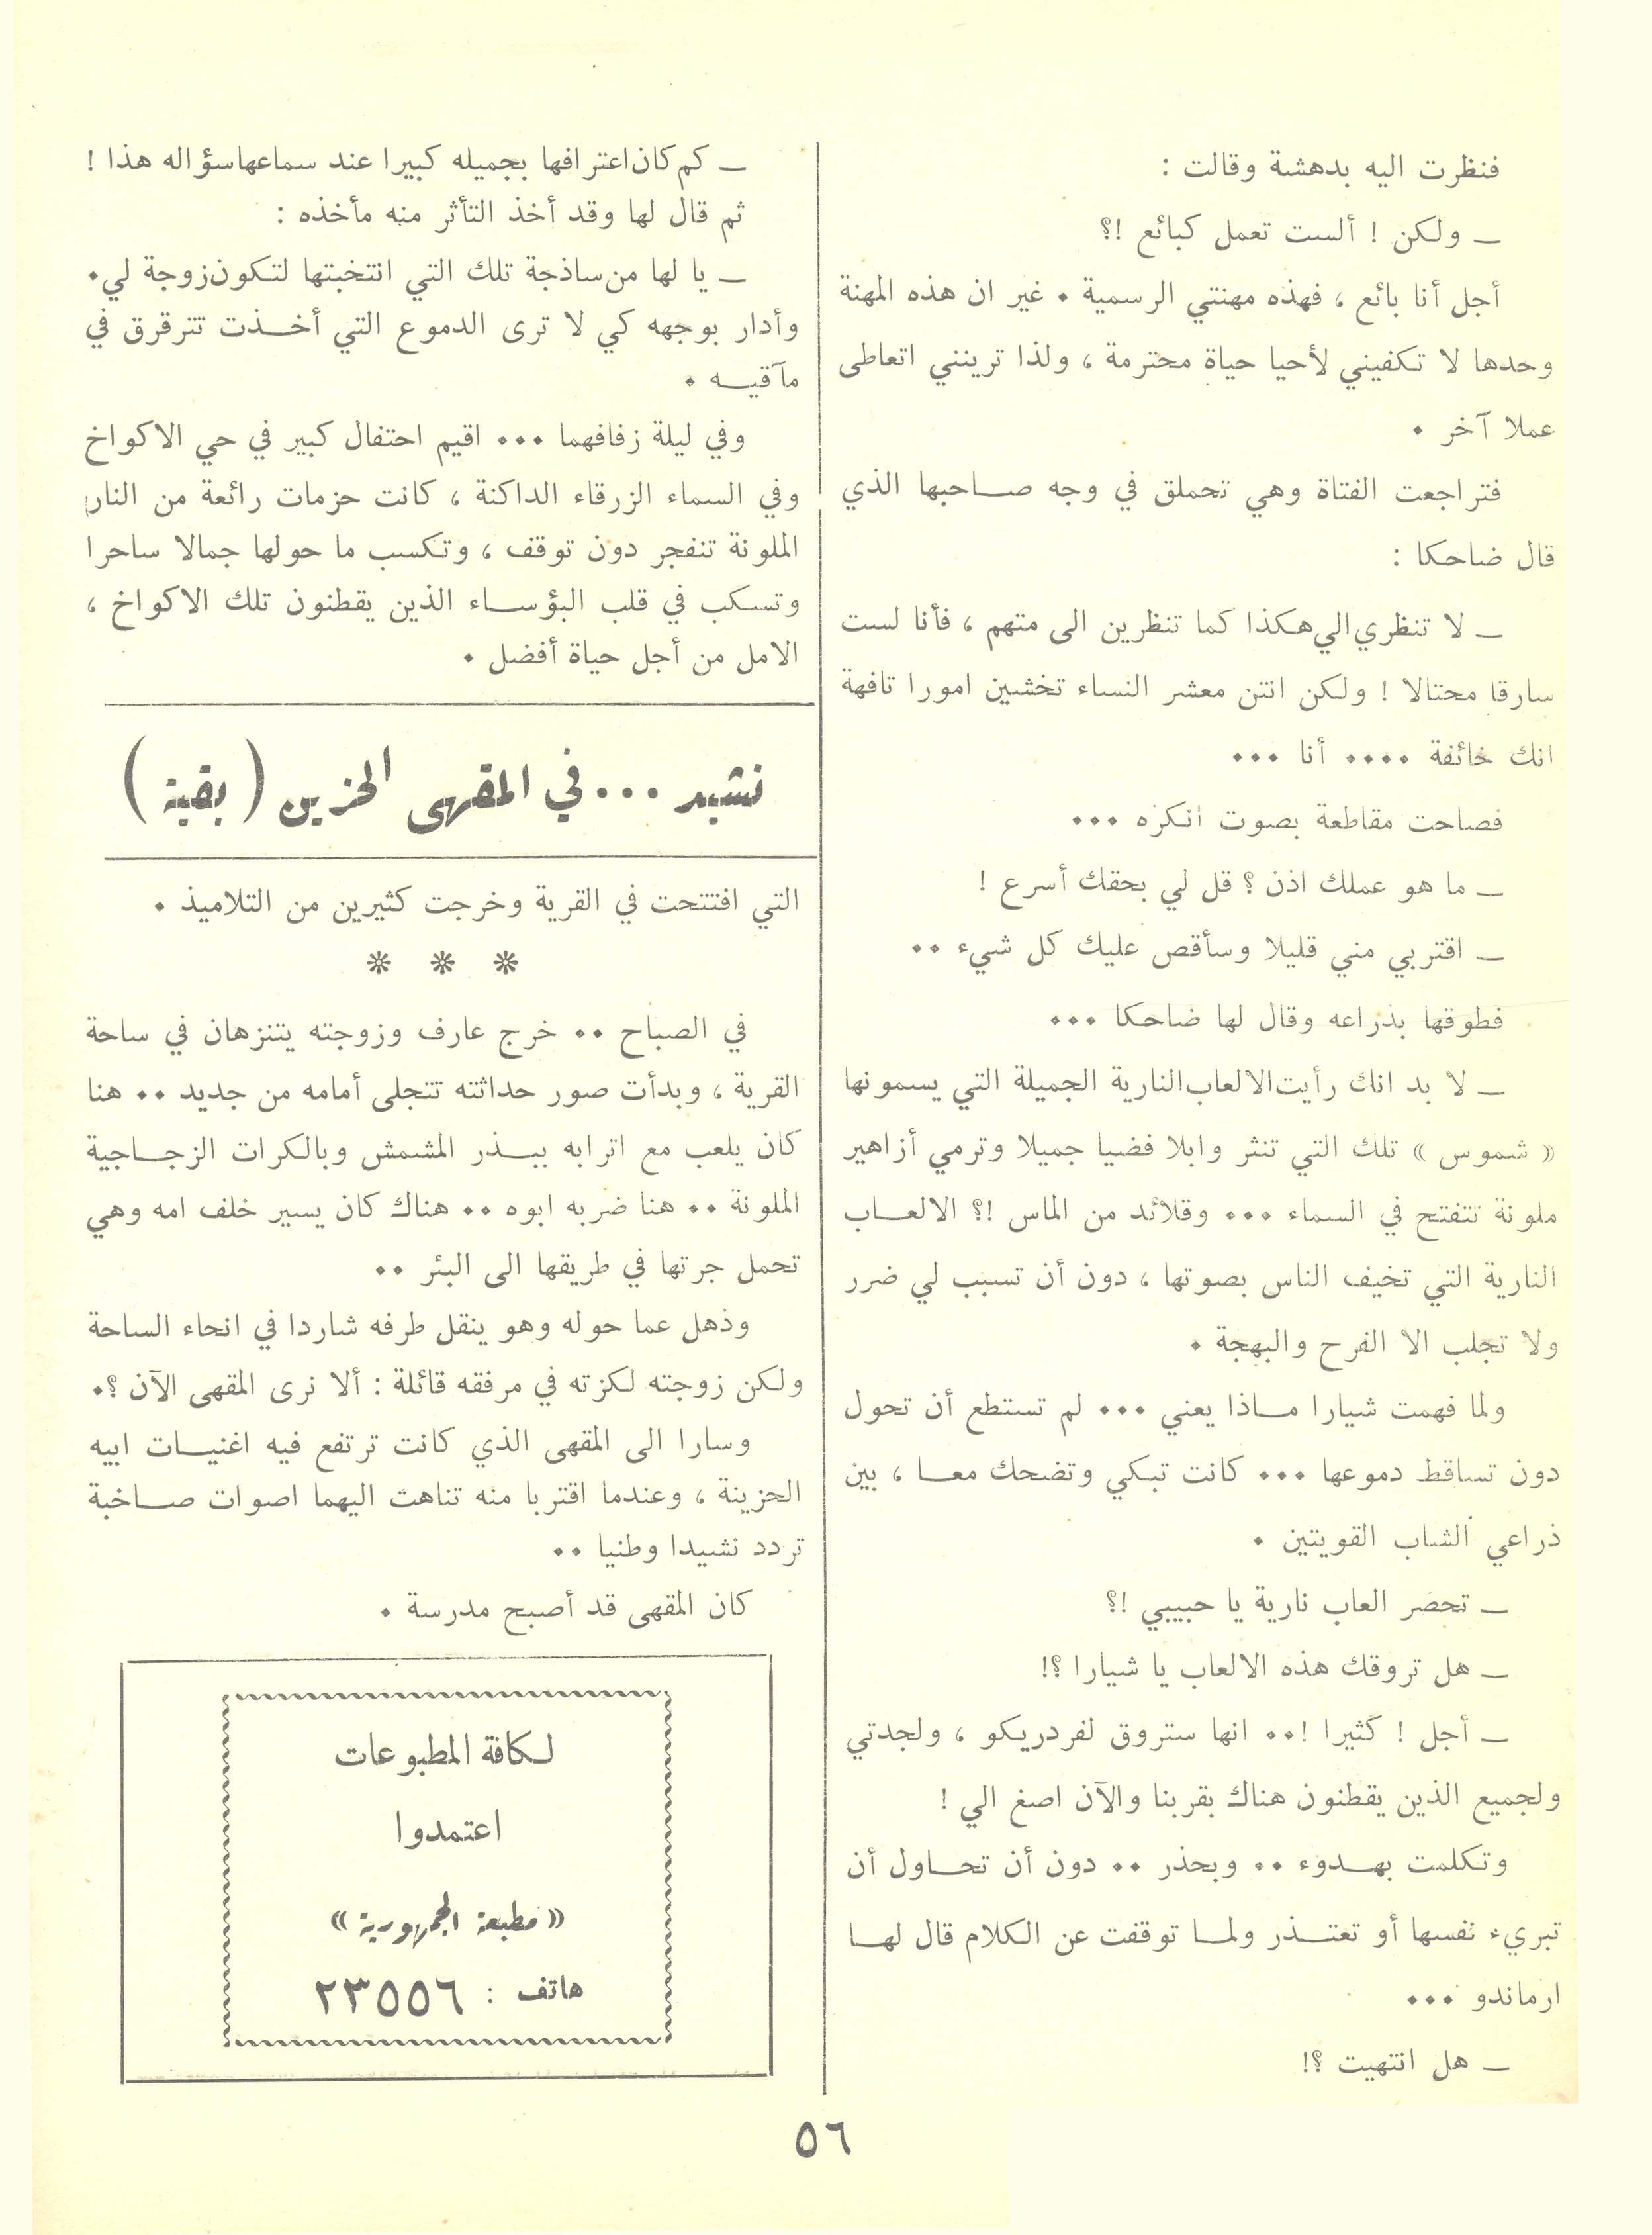 فنظرت اليه بدهشة وقالت :
ــ ولكن ! ألست تعمل كبائع !؟
أجل أنا بائع ، فهذه مهنتي الرسمية . غير ان هذه المهنة
وحدها لا تكفيني لأحيا حياة محترمة ، ولذا ترينني اتعاطى
عملا آخر .
فتراجعت الفتاة وهي تحملق في وجه صاحبها الذي
قال ضاحكا :
ــ لا تنظري الي هكذا كما تنظرين الى متهم ، فأنا لست
سارقا محتالا ! ولكن انتن معشر النساء تخشين امورا تافهة
انك خائفة .... أنا ...
فصاحت مقاطعة بصوت انكره ...
ــ ما هو عملك اذن ؟ قل لي بحقك أسرع !
ــ اقتربي مني قليلا وسأقص عليك كل شيء ..
فطوقها بذراعه وقال لها ضاحكا ...
ــ لا بد انك رأيت الالعاب النارية الجميلة التي يسمونها
« شموس » تلك التي تنثر وابلا فضيا جميلا وترمي أزاهير
ملونة تتفتح في السماء ... وقلائد من الماس !؟ الالعاب
النارية التي تخيف الناس بصوتها ، دون أن تسبب لي ضرر
ولا تجلب الا الفرح والبهجة .
ولما فهمت شيارا ماذا يعني ... لم تستطع أن تحول
دون تساقط دموعها ... كانت تبكي وتضحك معا ، بين
ذراعي الشاب القويتين .
ــ تحضر العاب نارية يا حبيبي !؟
ــ هل تروقك هذه الالعاب يا شيارا ؟!
ــ أجل ! كثيرا !.. انها ستروق لفردريكو ، ولجدتي
ولجميع الذين يقطنون هناك بقربنا والآن اصغ الي !
وتكلمت بهدوء .. وبحذر .. دون أن تحاول أن
تبريء نفسها أو تعتذر ولما توقفت عن الكلام قال لها
ارماندو ...
ــ هل انتهيت ؟!
ــ كم كان اعترافها بجميله كبيرا عند سماعها سؤاله هذا !
ثم قال لها وقد أخذ التأثر منه مأخذه :
ــ يا لها من ساذجة تلك التي انتخبتها لتكون زوجة لي .
وأدار بوجهه كي لا ترى الدموع التي أخذت تترقرق في
مآقيه .
وفي ليلة زفافهما ... اقيم احتفال كبير في حي الاكواخ
وفي السماء الزرقاء الداكنة ، كانت حزمات رائعة من النار
الملونة تنفجر دون توقف ، وتكسب ما حولها جمالا ساحرا
وتسكب في قلب البؤساء الذين يقطنون تلك الاكواخ ،
الامل من أجل حياة أفضل .
نشيد ... في المقهى الحزين ( بقية )
التي افتتحت في القرية وخرجت كثيرين من التلاميذ .
* * *
في الصباح .. خرج عارف وزوجته يتنزهان في ساحة
القرية ، وبدأت صور حداثته تتجلى أمامه من جديد .. هنا
كان يلعب مع اترابه ببذر المشمش وبالكرات الزجاجية
الملونة .. هنا ضربه ابوه .. هناك كان يسير خلف امه وهي
تحمل جرتها في طريقها الى البئر ..
وذهل عما حوله وهو ينقل طرفه شاردا في انحاء الساحة
ولكن زوجته لكزته في مرفقه قائلة : ألا نرى المقهى الآن ؟.
وسارا الى المقهى الذي كانت ترتفع فيه اغنيات ابيه
الحزينة ، وعندما اقتربا منه تناهت اليهما اصوات صاخبة
تردد نشيدا وطنيا ..
كان المقهى قد أصبح مدرسة .
لكافة المطبوعات
اعتمدوا
« مطبعة الجمهورية »
هاتف : ٢٣٥٥٦
٥٦